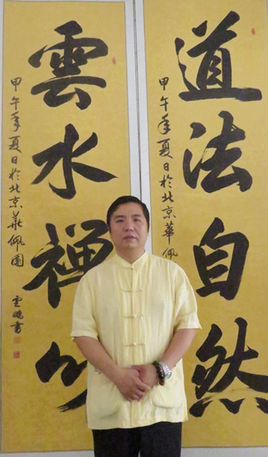 道法自然
甲午年夏日於北京華佩
雲水禪
甲午年夏日於北京華佩園
書